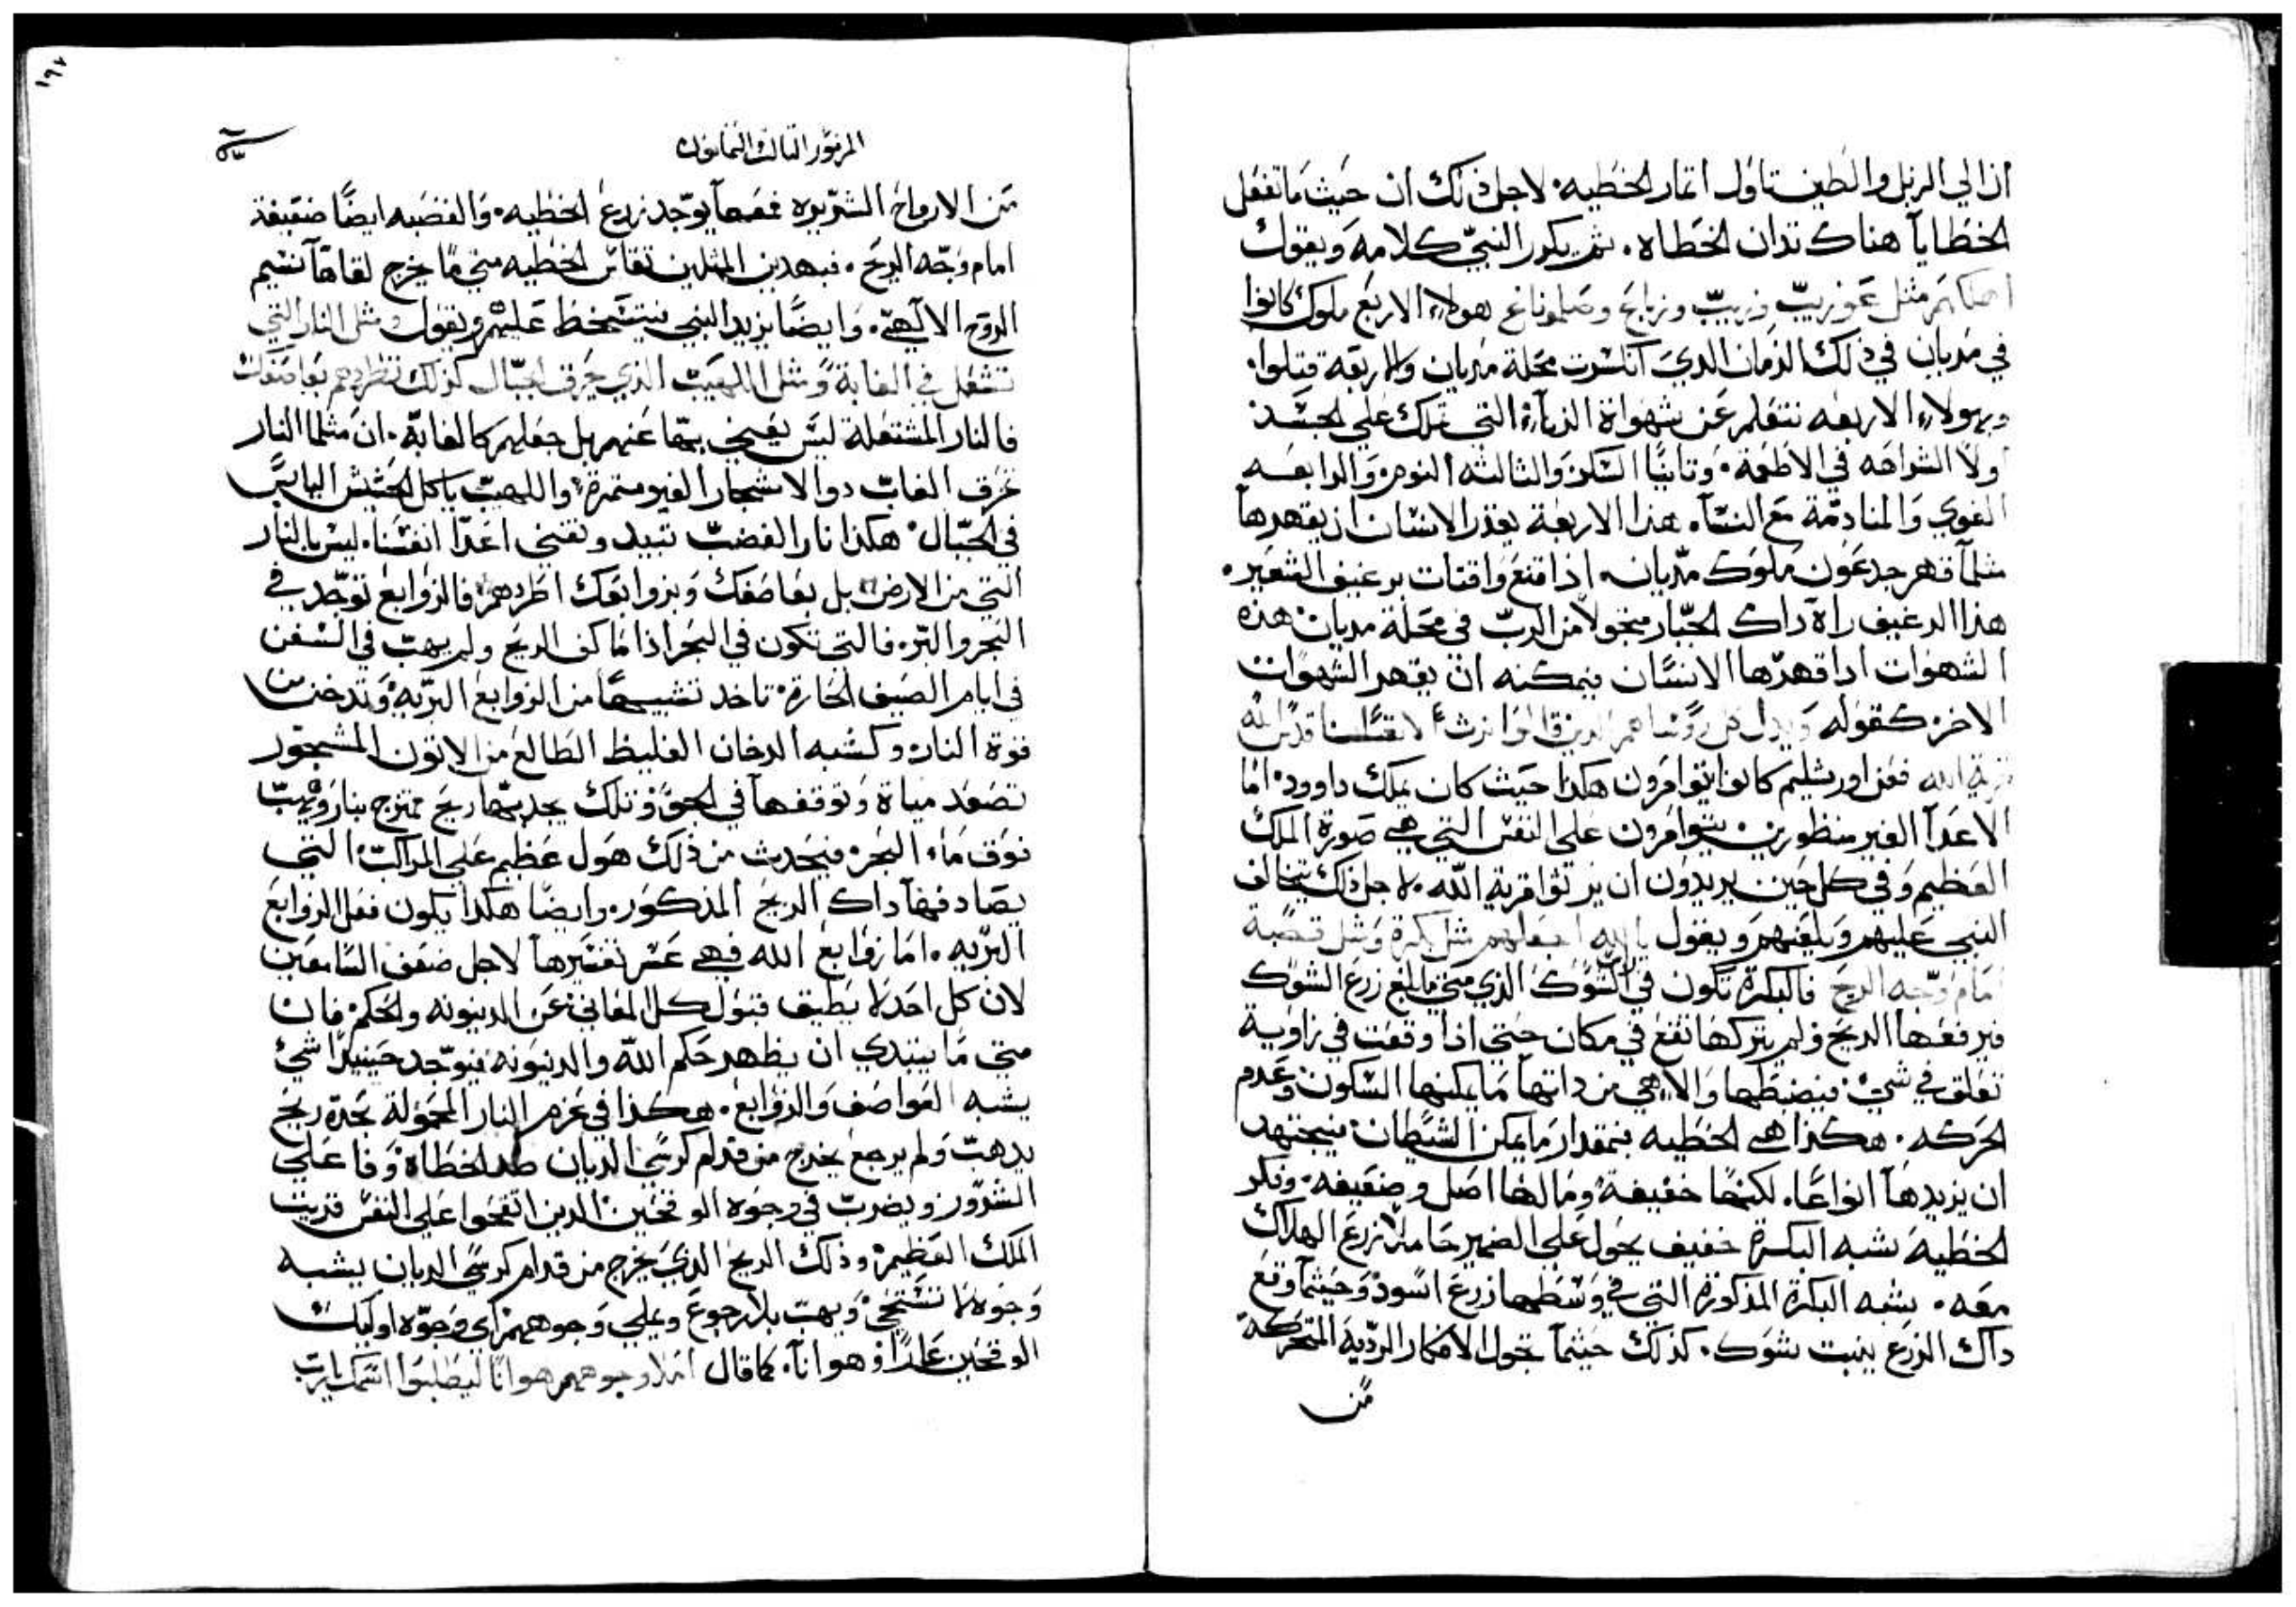 اذ الي الزبل والطين تاول اتمار الخطيه. لاجل ذلك ان حيث ما تفعل
الخطايا هناك تدان الخطاه. ثم يكرر النبي كلامه ويقول
مثل عوزيب وزيب وزابح وصلموناع هولاء الاربع ملوك كانوا
في مديان في ذلك الزمان الدي انكسرت محلة مديان والاربعه قتلوا.
وبهولاء الاربعه نتعلم عن شهواة الدياء التي تملك علي الجسد:
اولا الشراهه في الاطعمة. وتانيًا السكر والثالثه النوم والرابعه
الغوي والمنادمة مع النساء. هذا الاربعة يقدر الانسان ان يقهرها
مثلما قهر جدعون ملوك مديان. اذا قتع واقتات برغيف الشعير.
هذا الرغيف راه داك الجبار متحولاً من الرب في محلة مديان هذه
الشهوات ادا قهرها الانسان فيمكنه ان يقهر الشهوات
الاخر كقوله وبدل كل روسا هم الدين قالوا نرث لانفسنا قدس الله
قرية الله فعن اورشليم كانوا يتوامرون هكذا حيث كان يملك داوود. اما
الاعدا الغير منظورين يتوامرون علي النفس التي هي صورة الملك
العظيم وفي كل حين يريدون ان يرتوا قرية الله. لاجل ذلك يتخالف
النبي عليهم ويلعنهم ويقول يا الهي اجعلهم مثل بكرة ومثل قصبة
امام وجه الريح فالبكرة تكون في الشوك الدي متي ما بلغ زرع الشوك
فيرفعها الريح ولم يتركها تقع في مكان حتي اذا وقعت في زاوية
تعلق في شي فيضبطها والا هي من داتها ما يمكنها السكون وعدم
الحركه. هكذا هي الخطيه فبمقدار ما يمكن الشيطان فيجتهد
ان يزيدها انواعًا. لكنها خفيفة وما لها اصل وضعيفه. وفكر
الخطية يشبه البكرة خفيف يحول علي الضمير حاملا زرع الهلاك
معه. يشبه البكرة المذكورة التي في وسطها زرع اسود وحيثما وقع
داك الزرع ينبت شوك. كذلك حيثما تحول الافكار الردية المتحركة
من
١٩٧
المزمور التالت والتمانون
من الارواح الشريره فمعها يوجد زرع الخطيه. والقصبه ايضًا ضعيفة
امام وجه الريح. فبهدين المثلين تقاس الخطيه متي ما خرج لقاها نسيم
الروح الالهي. وايضًا يزيد النبي يتسخط عليهم ويقول ومثل النار التي
تشعل في الغابة ومثل اللهيب الذي يحرق الجبال كذلك تطردهم بعاصفك
فالنار المشتعلة ليس يعيني بها عنهم بل جعلهم كالغابة. ان مثلما النار
تحرق الغاب دوا الاشجار الغير متمرة واللهيب ياكل الحشيش اليابس
في الجبال هكذا نار الغضب تبيد وتفني اعدا انفسنا. ليس بالنار
التي من الارض بل بعاصفك وبزوابعك اطردهم فالزوابع توجد في
البحر والبر. فالتي تكون في البحر اذا ما كف الريح ولم يهب في السفن
في ايام الصيف الحارة. تاخد تشبيهًا من الزوابع البريه وتدخن من
قوة النار. وكشبه الدخان الغليظ الطالع من الاتون المشجور
تصعد مياة وتوقفها في الجو وتلك يجدبها ريح ممتزج بنار ويهب
فوق ماء البحر. فيحدث من ذلك هول عظيم علي المراكب التي
يصادفها داك الريح المذكور. وايضًا هكذا يكون فعل الزوابع
البريه. اما زوابع الله فهي عسر تفسيرها لاجل ضعف السامعين
لان كل احد لا يطيق قبول كل المعاني عن الدينونه والحكم فان
متي ما يبتدي ان يظهر حكم الله والدينونه فيوجد حينيدًا شي
يشبه العواصف والزوابع. هكذا في عزم النار المحمولة بحدة ريح
يدهب ولم يرجع يخرج من قدام كرسي الديان ضد الخطاة وفاعلي
الشرور ويضرب في وجوه الوقحين الدين اتقحوا علي النفس قريت
الملك العظيم. وذلك الريح الدي يخرج من قدام كرسي الديان يشبه
وجوه لا تستحي ويهب بلا رجوع وعلي وجوههم اي وجوه اوليك
الوقحين عارًا وهوانًا. كما قال املا وجوههم هوانًا ليطلبوا اسمك يا رب